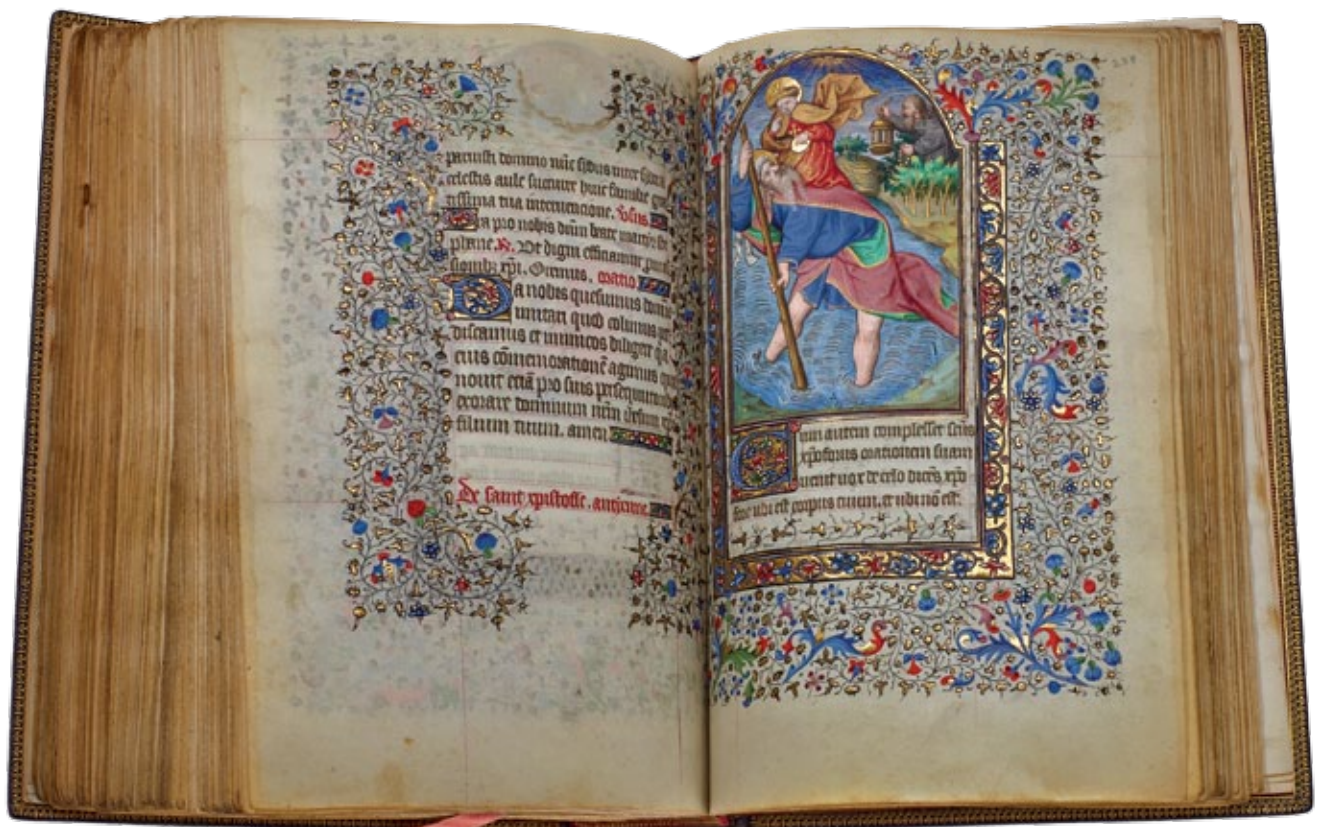 paruisti domino nunc sydus inter sydera
celestis aule succurre huic familie
tissima tua intercessione. Vsus.
Ora pro nobis deum beate martyr ste
phane. R. Vt digni efficiamur
sionibus xpi. Oremus. oratio
Da nobis quesumus
imitari quod colimus
discamus et inimicos diligere
eius cōmemorationē agimus
nouit eciā pro suis persequutoribus
exorare dominum nrm
filium tuum. amen
De saint xpistofle. antienne.
Cum autem complesset scūs
xpoforus orationem suam
venit vox de celo dicēs xpo
fore ubi est corpus tuum. et ubi nō est